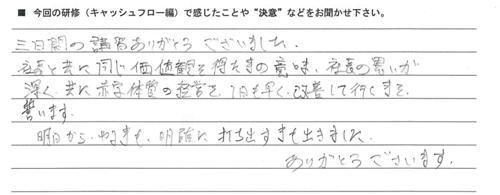 ■ 今回の研修(キャッシュフロー編)で感じたことや“決意”などをお聞かせ下さい。
三日間の講習ありがとうございました。
社長と共に同じ価値観を得た事の意味、社長の思いが
深く、共に赤字体質の経営を1日も早く、改善して行く事を
誓います。
明日から、やる事も、明確に打ち出す事も出きました。
ありがとうございます。